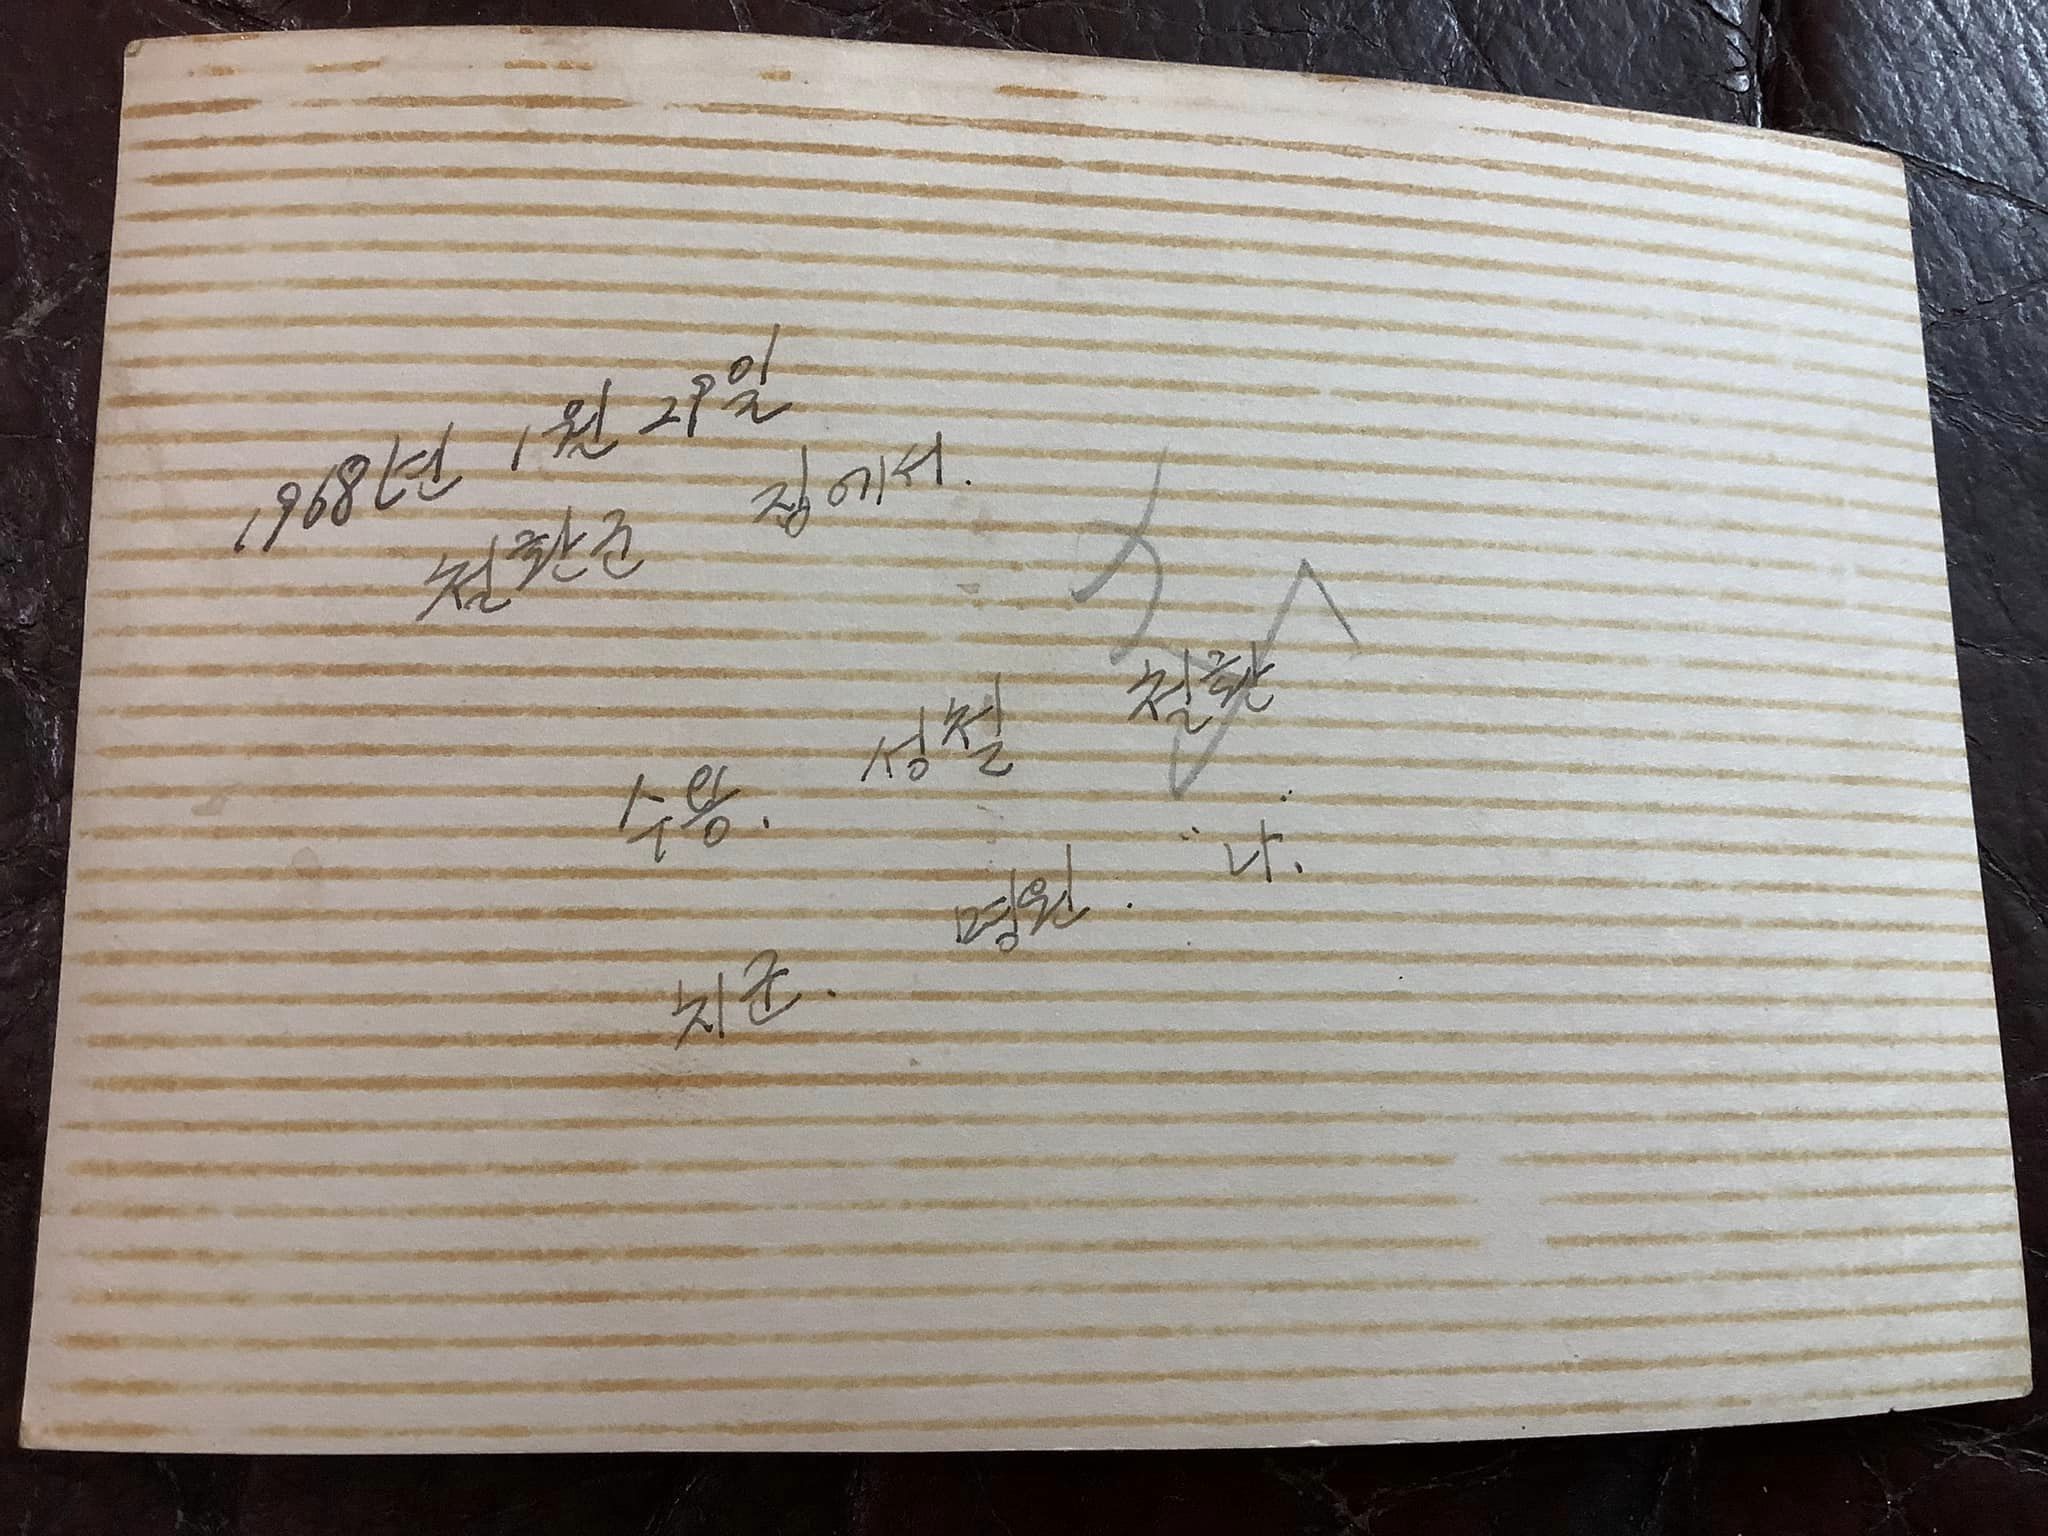 1968년 1월 29일
철환군 집에서.
수웅. 성철 철환
치군. 명원. 나.